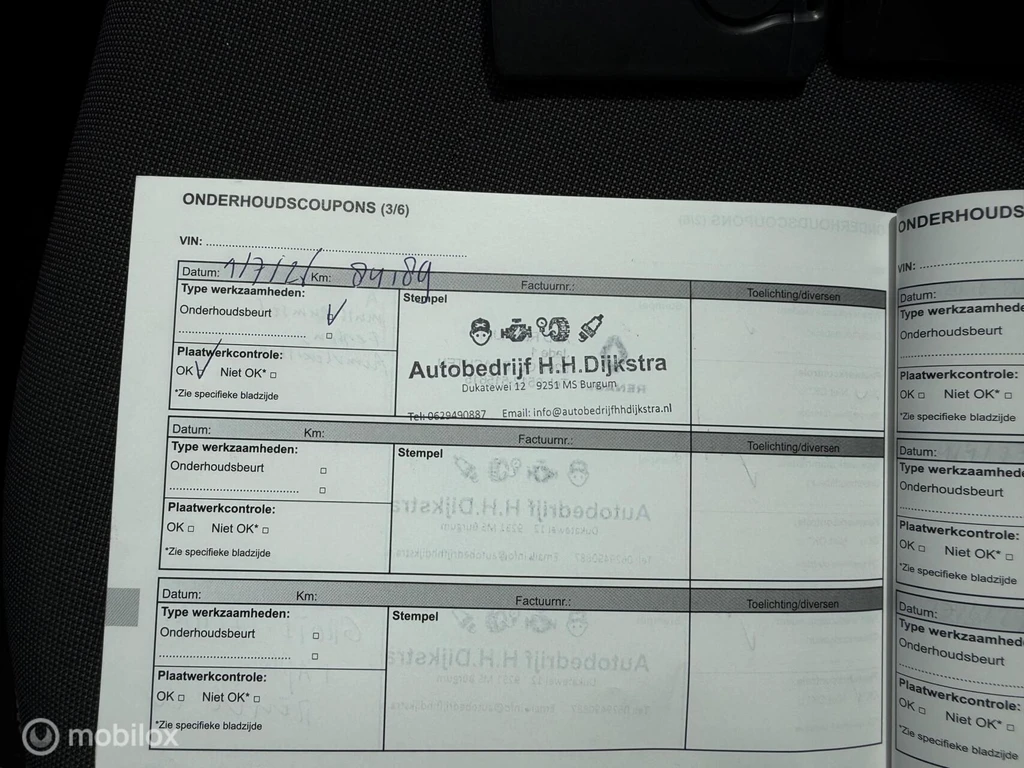 ONDERHOUDSCOUPONS (3/6)
VIN:
Datum: 1/7/21 Km: 84189 Factuurnr.: Toelichting/diversen
Type werkzaamheden: Stempel
Onderhoudsbeurt
Plaatwerkcontrole:
OK Niet OK*
*Zie specifieke bladzijde
Autobedrijf H.H.Dijkstra
Dukatewei 12 9251 MS Burgum
Tel: 0629490887 Email: info@autobedrijfhhdijkstra.nl
Datum: Km: Factuurnr.: Toelichting/diversen
Type werkzaamheden: Stempel
Onderhoudsbeurt
Plaatwerkcontrole:
OK Niet OK*
*Zie specifieke bladzijde
Datum: Km: Factuurnr.: Toelichting/diversen
Type werkzaamheden: Stempel
Onderhoudsbeurt
Plaatwerkcontrole:
OK Niet OK*
*Zie specifieke bladzijde
ONDERHOUDS
VIN:
Datum:
Type werkzaamhede
Onderhoudsbeurt
Plaatwerkcontrole:
OK Niet OK*
*Zie specifieke bladzijde
Datum:
Type werkzaamhede
Onderhoudsbeurt
Plaatwerkcontrole:
OK Niet OK*
*Zie specifieke bladzijde
Datum:
Type werkzaamhed
Onderhoudsbeurt
Plaatwerkcontrole:
OK Niet OK*
*Zie specifieke bladzijde
mobilox